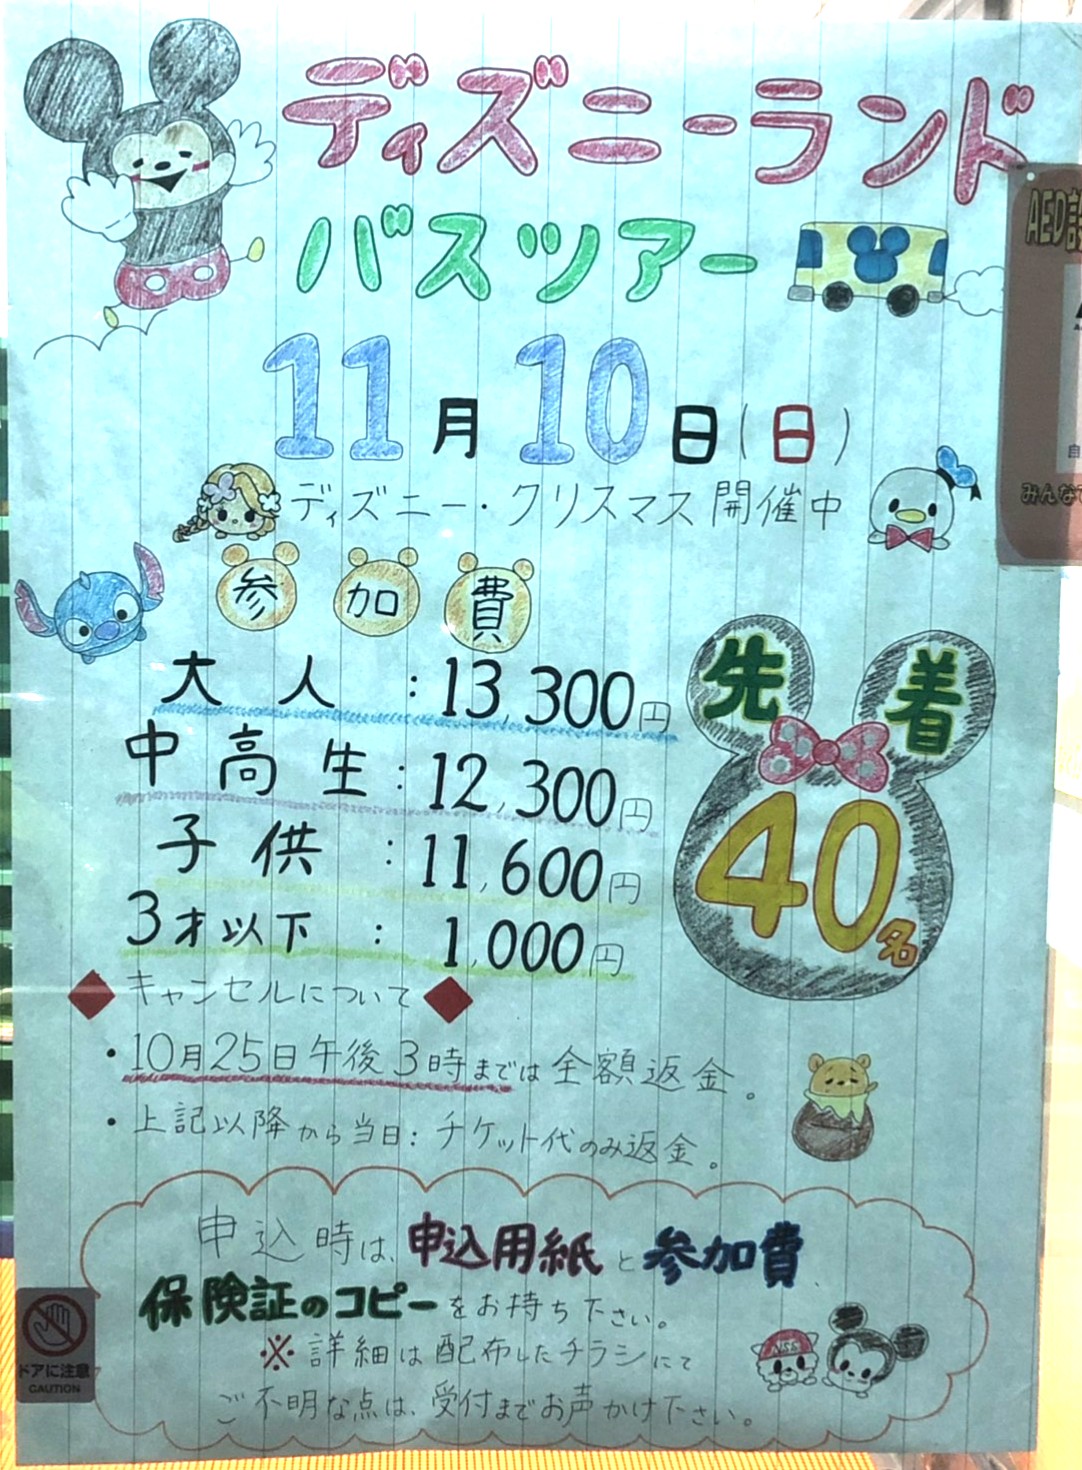 ディズニーランド
バスツアー
11月10日(日)
ディズニー・クリスマス開催中
参加費
大人:13,300円
中高生:12,300円
子供:11,600円
3才以下:1,000円
先着
40名
◆キャンセルについて◆
・10月25日午後3時までは全額返金。
・上記以降から当日:チケット代のみ返金。
申込時は、申込用紙と参加費、
保険証のコピーをお持ち下さい。
※詳細は配布したチラシにて
ご不明な点は、受付までお声かけ下さい。
AED
みんなで
ドアに注意
CAUTION